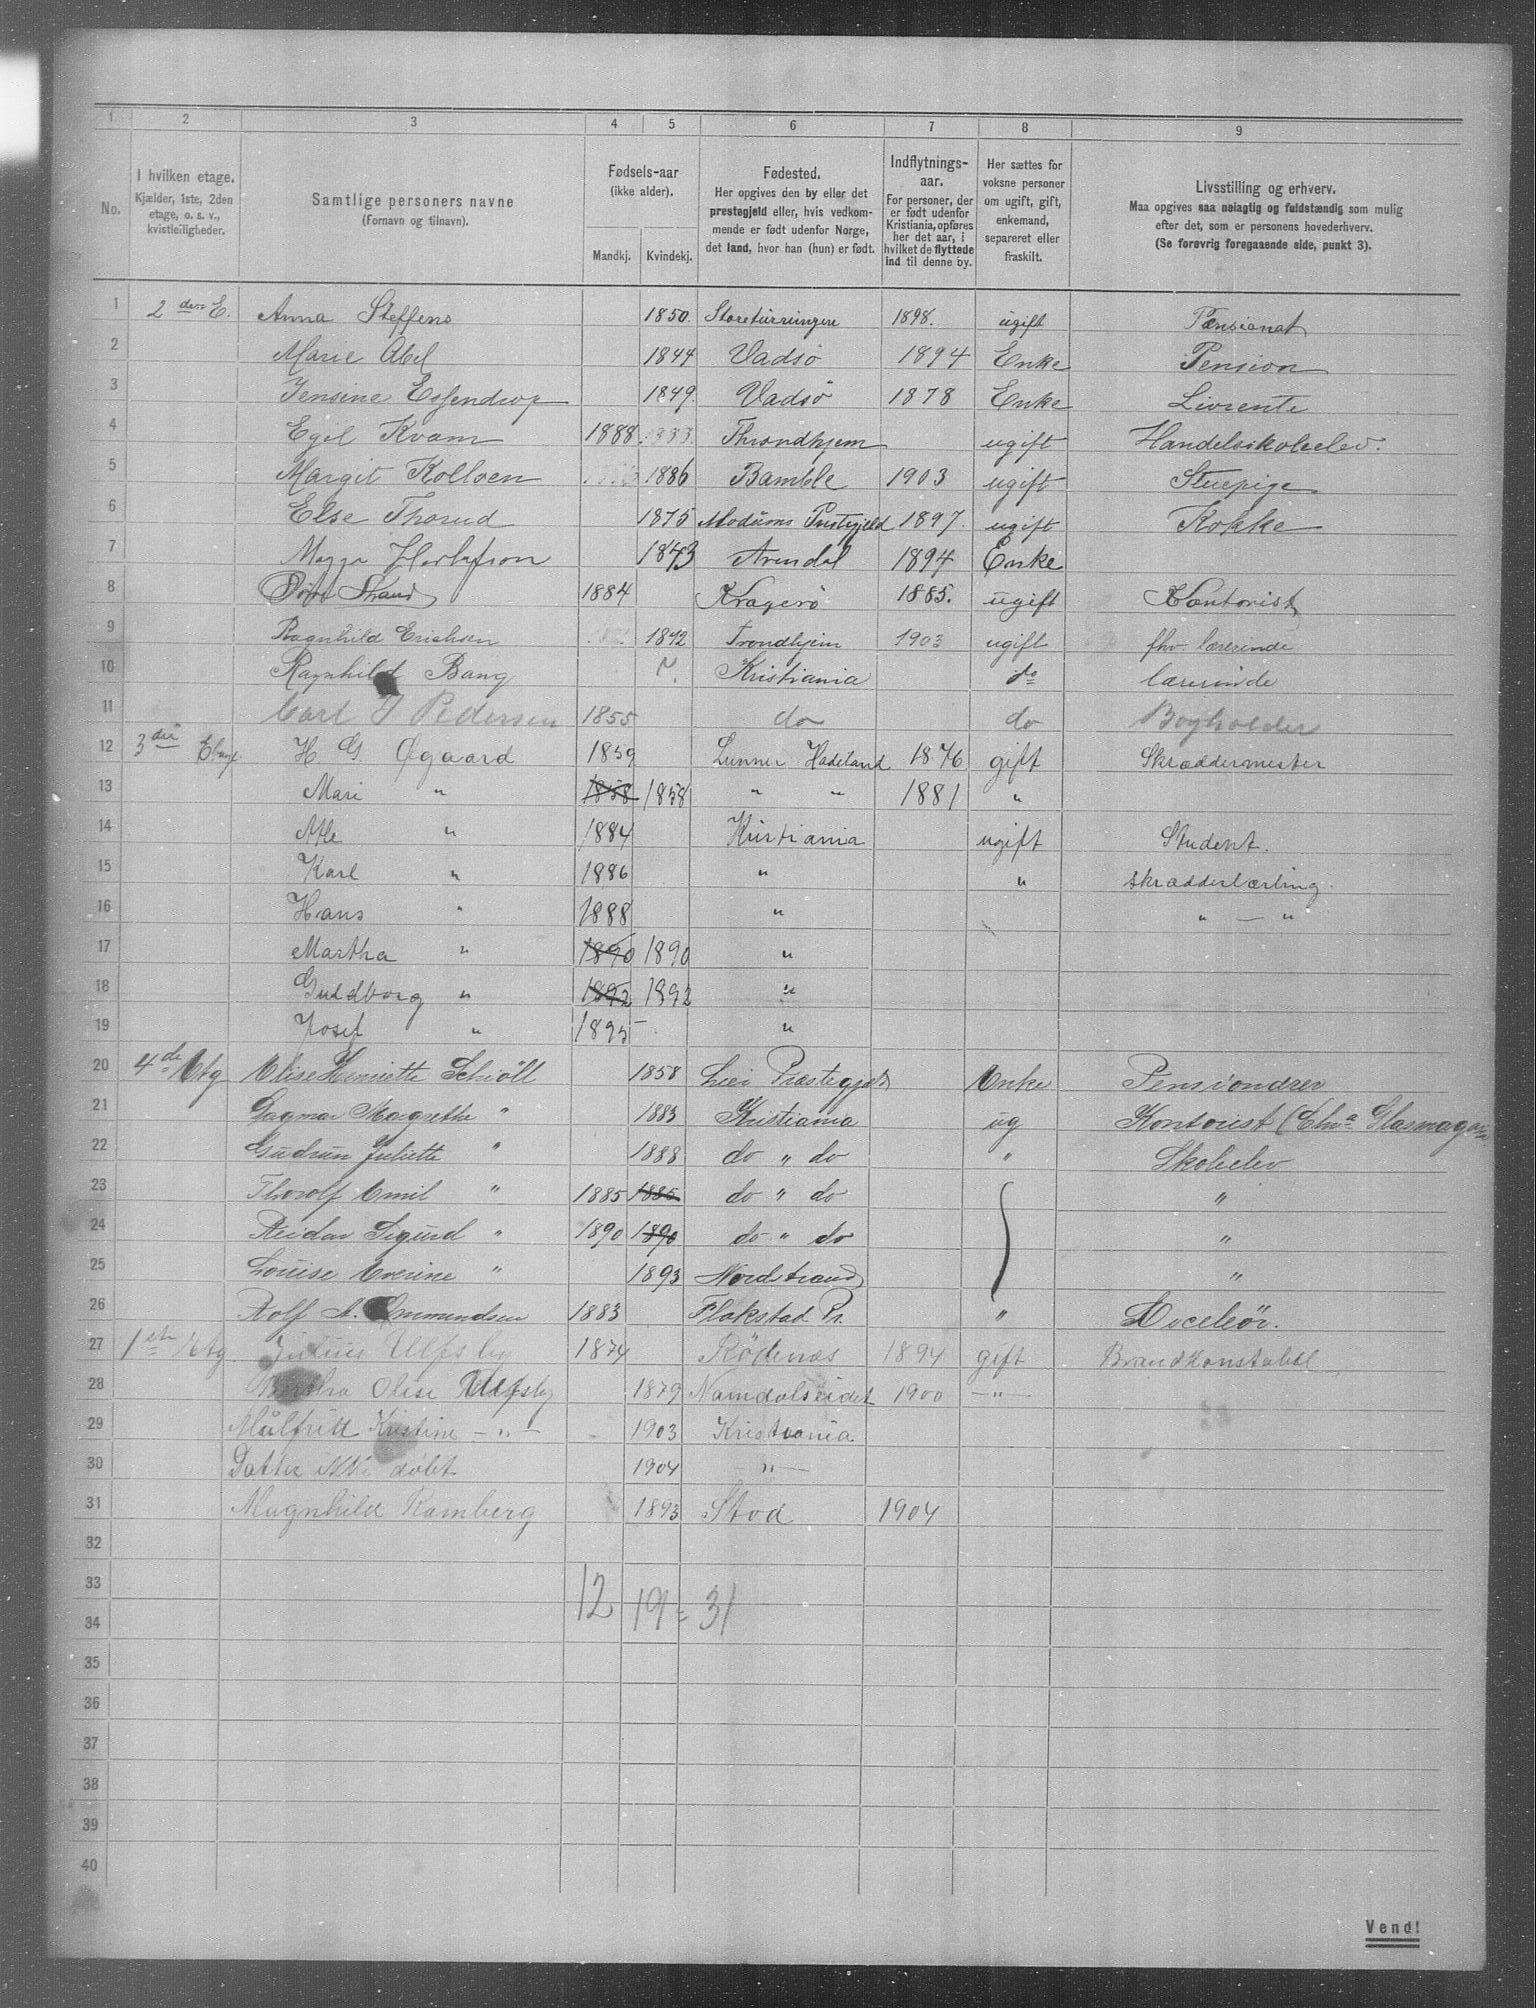 1 2 3 4 5 6 7 8 9
No.
I hvilken etage.
Kjælder, 1ste, 2den
etage, o. s. v.,
kvistleiligheder.
Samtlige personers navne
(Fornavn og tilnavn).
Fødsels-aar
(ikke alder).
Mandkj. Kvindekj.
Fødested.
Her opgives den by eller det
prestegjeld eller, hvis vedkom-
mende er født udenfor Norge,
det land, hvor han (hun) er født.
Indflytnings-
aar.
For personer, der
er født udenfor
Kristiania, opføres
her det aar, i
hvilket de flyttede
ind til denne by.
Her sættes for
voksne personer
om ugift, gift,
enkemand,
separeret eller
fraskilt.
Livsstilling og erhverv.
Maa opgives saa nøiagtig og fuldstændig som mulig
efter det, som er personens hovederhverv.
(Se forøvrig foregaaende side, punkt 3).
1 2 den E. Anna Steffens 1850 1898. ugift Pensionat
2 Marie Abel 1844 Vadsö 1894 Enke Pension
3 Jensine Essendrop 1849 Vadsö 1878 Enke Livrente
4 Egil Kvam 1888 Throndhjem ugift Handelsskoleelev.
5 Margit Kolloen 1886 Bamble 1903 ugift Stuepige
6 Else Thorud 1875 Modums Prestegjeld 1897. ugift Kokke
7 Magga 1843 Arendal 1894 Enke
8 Strand 1884 Kragerö 1885. ugift Kontorist
9 Ragnhild Erichsen 1842 Trondhjem 1903 ugift fhv. lærerinde
10 Ragnhild Bang ?. Kristiania do lærerinde
11 Carl J Pedersen 1855 do do Bogholder
12 3die Etage H. G. Øgaard 1859 Lunner Hadeland 1876 gift Skræddermester
13 Mari " 1858 1858 " " 1881 "
14 Atle " 1884 Kristiania ugift Student.
15 Karl " 1886 " " skrædderlærling.
16 Hans " 1888 " " — "
17 Martha " 1890 1890 "
18 Guldborg " 1892 1892 "
19 Josef " 1895 "
20 4de Etg Elise Henriette Schiöll 1858 Lier Præstegjeld Enke Pensionær
21 Dagmar Margrethe " 1883 Kristiania ug Kontorist (Chra Glasmagasin
22 Gudrun Juliette " 1888 do " do " Skoleelev
23 Thorolf Emil " 1885 1885 do " do "
24 Reidar Sigurd " 1890 1890 do " do "
25 Louise Everine " 1893 Nordstrand "
26 Rolf A. Gmmundsen 1883 Flakstad Pr. "
27 1ste Etg. Julius Ulfsby 1874 Rödenæs 1894 gift Brandkonstabel
28 Bertha Olise Ulfsby 1879 Namdalseidet 1900 — " —
29 Målfrid Kristine — " — 1903 Kristiania
30 Datter ikke døbt 1904 — " —
31 Magnhild Ramberg 1893 Stod 1904
32
33 12 19 = 31
34
35
36
37
38
39
40
Vend!